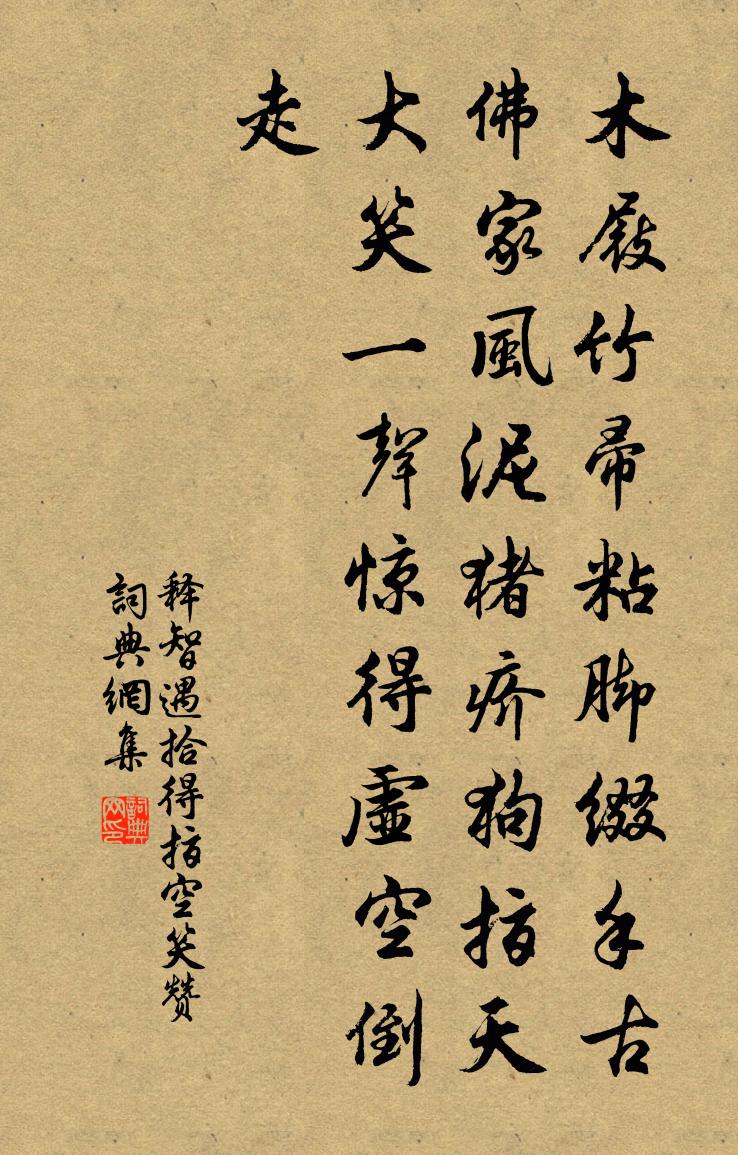 木屐竹帚粘脚缀手古
佛家風泥猪疥狗指天
大笑一聲惊得虚空倒
走
释智遇拾得指空笑赞
詞典網集
詞典网印